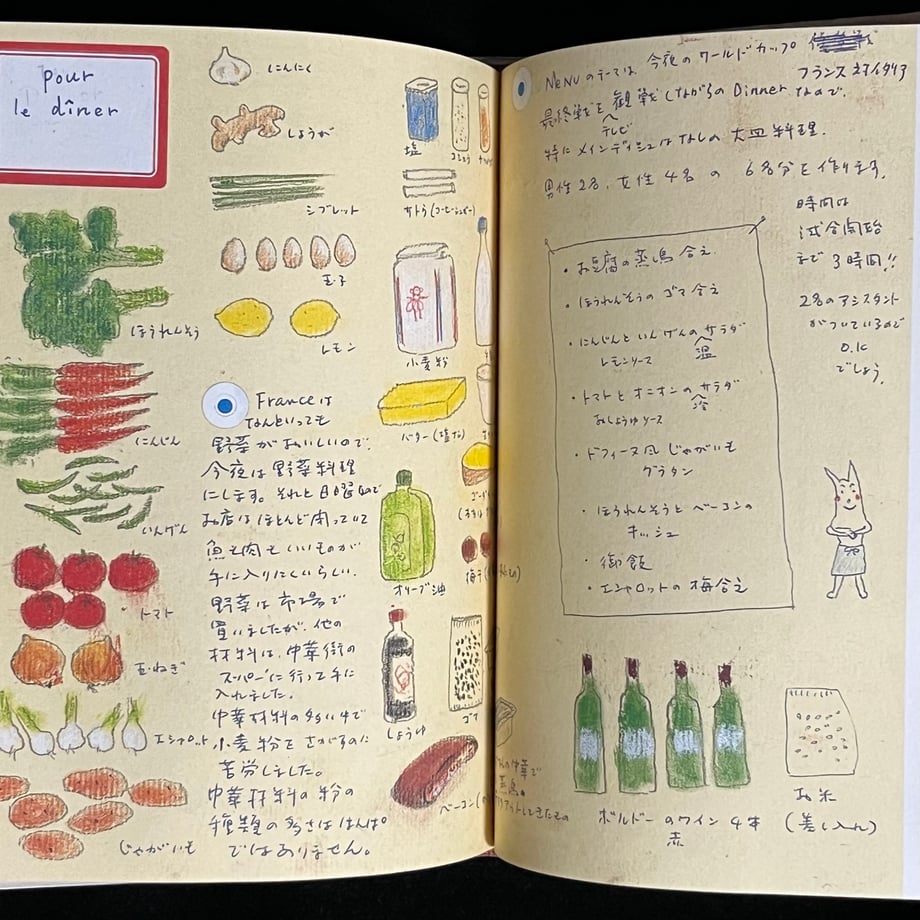 pour
le dîner
にんにく
しょうが
シブレット
玉子
レモン
ほうれんそう
にんじん
いんげん
トマト
玉ねぎ
エシャロット
じゃがいも
塩
こしょう
サトウ(コーヒーシュガー)
小麦粉
バター(塩なし)
オリーブ油
しょうゆ
ゴマ
ベーコン
Franceは
なんといっても
野菜がおいしいので、
今夜は野菜料理
にします。それと日曜なので
お店はほとんど閉っていて
魚も肉もいいものが
手に入りにくいらしい。
野菜は市場で
買いましたが、他の
材料は、中華街の
スーパーに行って手に
入れました。
中華材料の多い中で
小麦粉をさがすのに
苦労しました。
中華材料の粉の
種類の多さははんぱ
ではありません。
Menuのテーマは 今夜のワールドカップ
フランス対イタリア
最終戦を観戦しながらのDinnerなので、
テレビ
特にメインディッシュはなしの大皿料理.
男性2名、女性4名の 6名分を作ります.
時間は
試合開始
まで3時間!!
2名のアシスタント
がついているので
O.K
でしょう.
・お豆腐の蒸し鳥合え
・ほうれんそうのゴマ合え
・にんじんといんげんのサラダ
レモンソース 温
・トマトとオニオンのサラダ
おしょうゆソース 冷
・ドフィーヌ風じゃがいも
グラタン
・ほうれんそうとベーコンの
キッシュ
・御飯
・エシャロットの梅合え
ボルドーのワイン4本
赤
お米
(差し入れ)